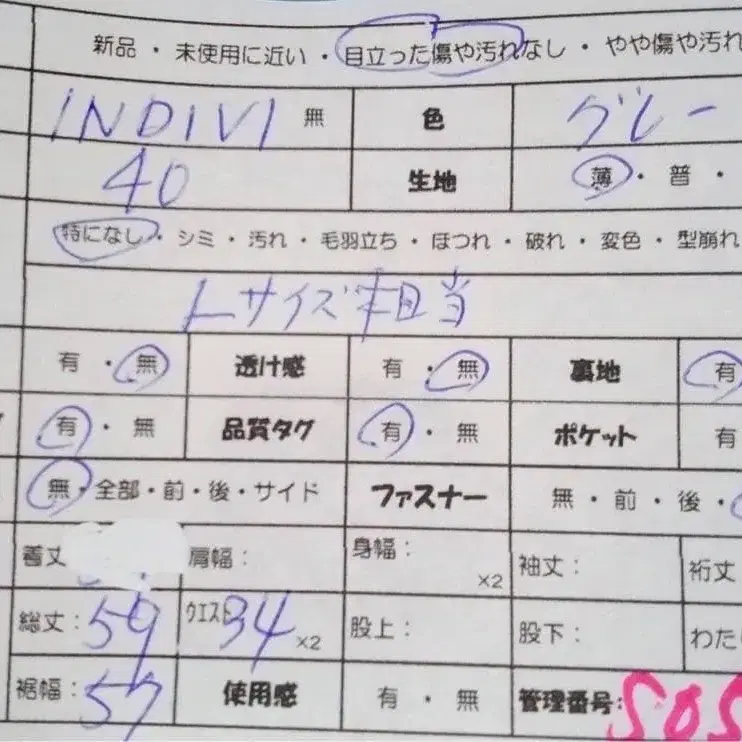 新品 ・ 未使用に近い ・ 目立った傷や汚れなし ・ やや傷や汚れ
INDIVI 無 色 グレー
40 生地 薄 ・ 普 ・
特になし ・ シミ ・ 汚れ ・ 毛羽立ち ・ ほつれ ・ 破れ ・ 変色 ・ 型崩れ
Lサイズ相当
有 ・ 無 透け感 有 ・ 無 裏地 有
有 ・ 無 品質タグ 有 ・ 無 ポケット 有
無 ・ 全部 ・ 前 ・ 後 ・ サイド ファスナー 無 ・ 前 ・ 後 ・
着丈 肩幅: 身幅: ×2 袖丈: 裄丈
総丈: 59 ウエスト 34 ×2 股上: 股下: わた
裾幅: 57 使用感 有 ・ 無 管理番号: SOS